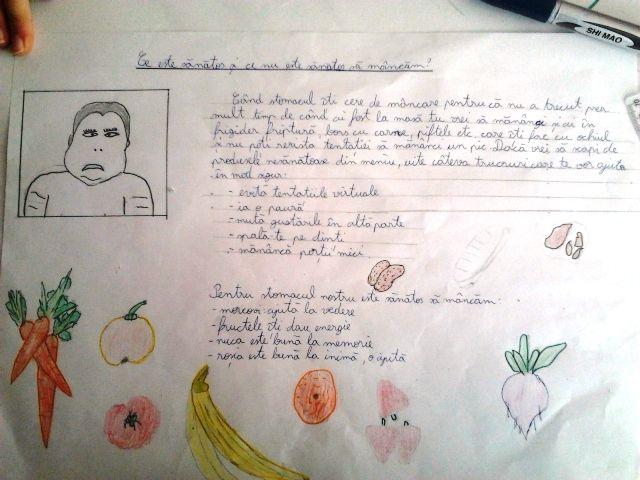 Ce este sănătos și ce nu este sănătos să mâncăm?
SHI MAO
Când stomacul îți cere de mâncare pentru că nu a trecut prea
mult timp de când ai fost la masă tu vrei să mănânci și ai în
frigider friptură, borș cu carne, piftele etc. care îți fac cu ochiul
și nu poți rezista tentației să mănânci un pic. Dacă vrei să scapi de
produsele nesănătoase din meniu, uite câteva trucruri care te vor ajuta
în mod sigur:
- evită tentațiile virtuale
- ia o pauză
- mută gustările în altă parte
- spală-te pe dinți
- mănâncă porții mici
Pentru stomacul nostru este sănătos să mâncăm:
- morcovi: ajută la vedere
- fructele îți dau energie
- nuca este bună la memorie
- roșia este bună la inimă, o ajută